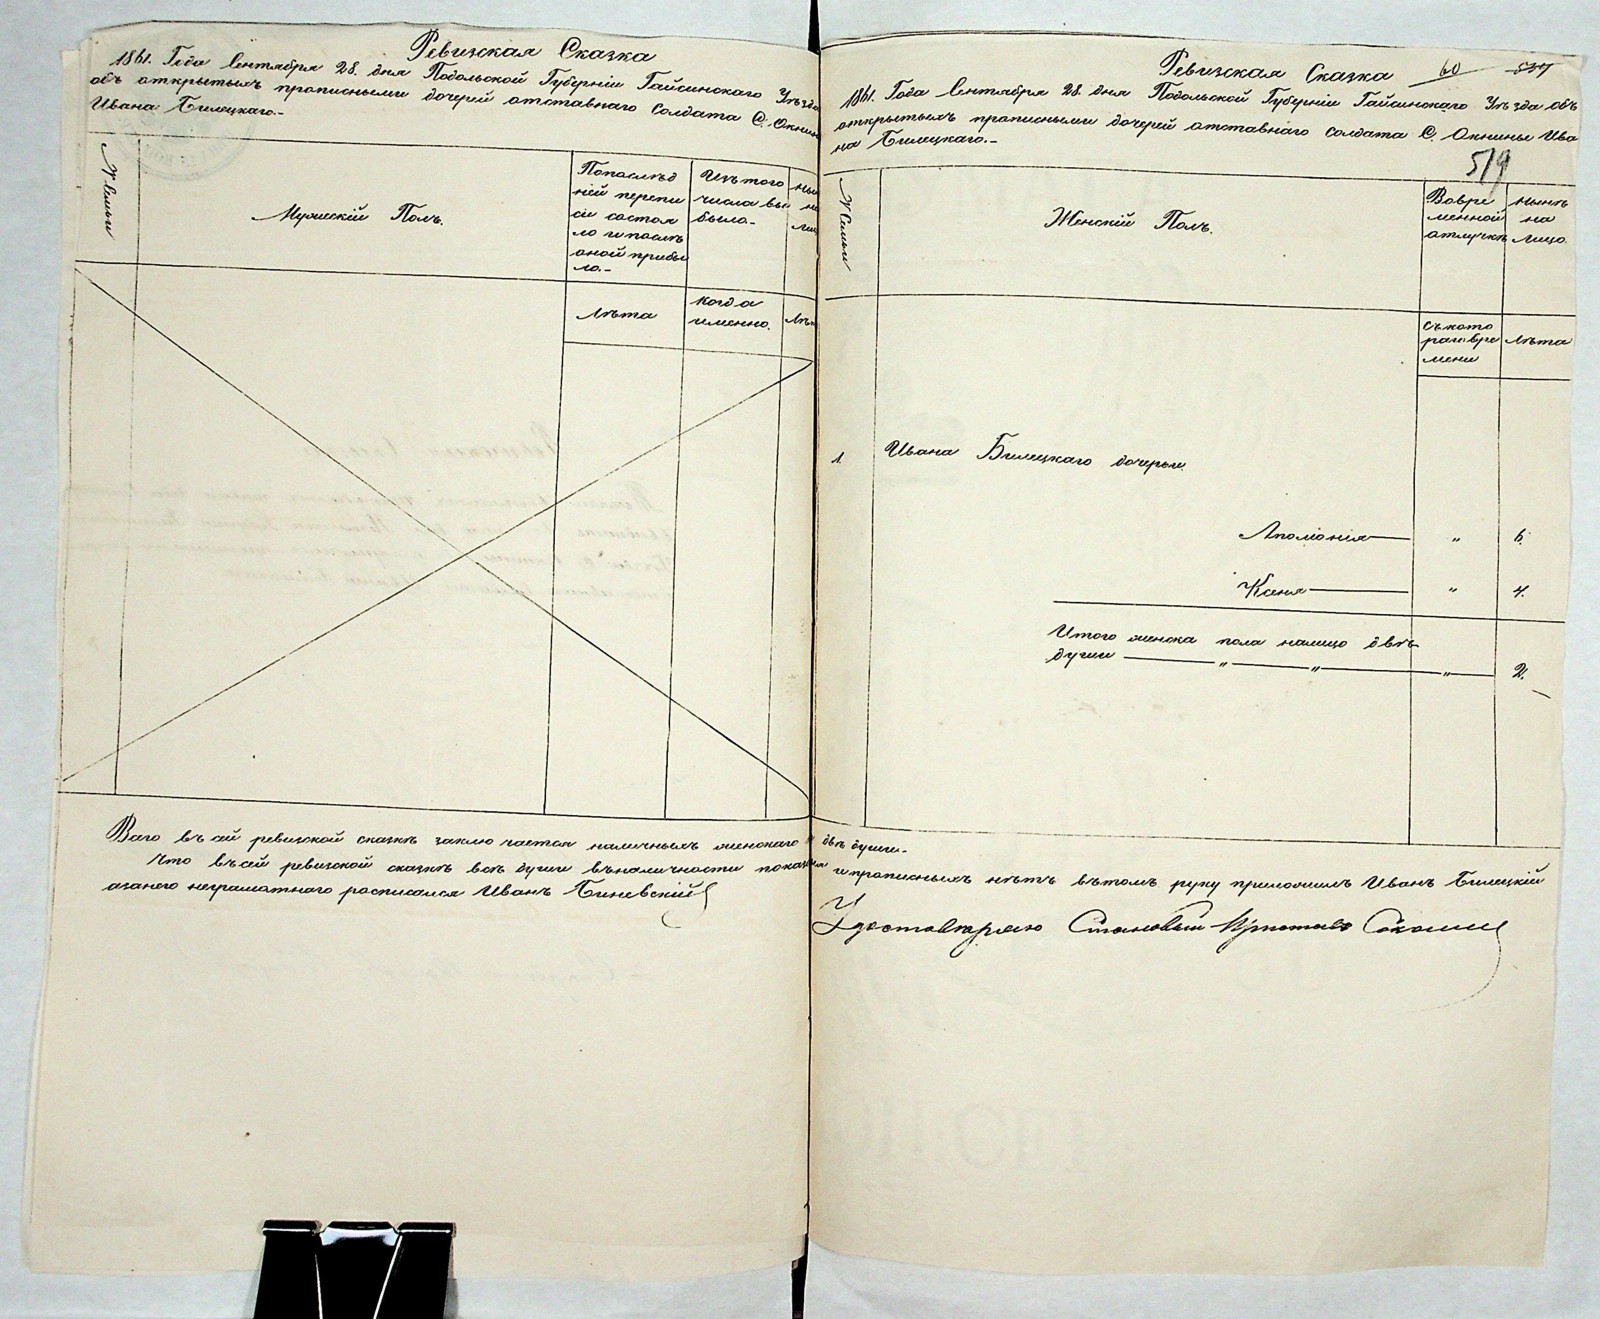 Ревизская Сказка
1861. Года Сентября 28. дня Подольской Губерніи Гайсинскаго Уѣзда
объ открытыхъ прописными дочерей отставнаго Солдата С. Окнины
Ивана Билецкаго.-
№ Семьи
Мужескій Полъ.
Попослѣд
ней перепи
си состоя
ло и послѣ
оной прибы
ло.-
Изъ того
числа вы
было.-
Лѣта
когда
именно.
Ревизская Сказка 60 537
1861. Года Сентября 28. дня Подольской Губерніи Гайсинскаго Уѣзда объ
открытыхъ прописными дочерей отставнаго Солдата С. Окнины Ива
на Билецкаго.-
519
№ Семьи
Женскій Полъ.
Вовре
менной
отлучкѣ
нынѣ
на
лицо.
съ кото
раго вре
мени
Лѣта
1. Ивана Билецкаго дочери.
Аполонія „ 6.
Ксенія „ 4.
Итого женска пола налицо двѣ
души „ „ „ 2.
Всего въ сей ревизской сказкѣ заключается наличныхъ женскаго двѣ души.-
Что въ сей ревизской сказкѣ всѣ души въ наличности показаны и прописныхъ нѣтъ вътомъ руку приложилъ Иванъ Билецкій
азанего неграматнаго росписался Иванъ Биневскій
Удостовѣряю Становый Приставъ